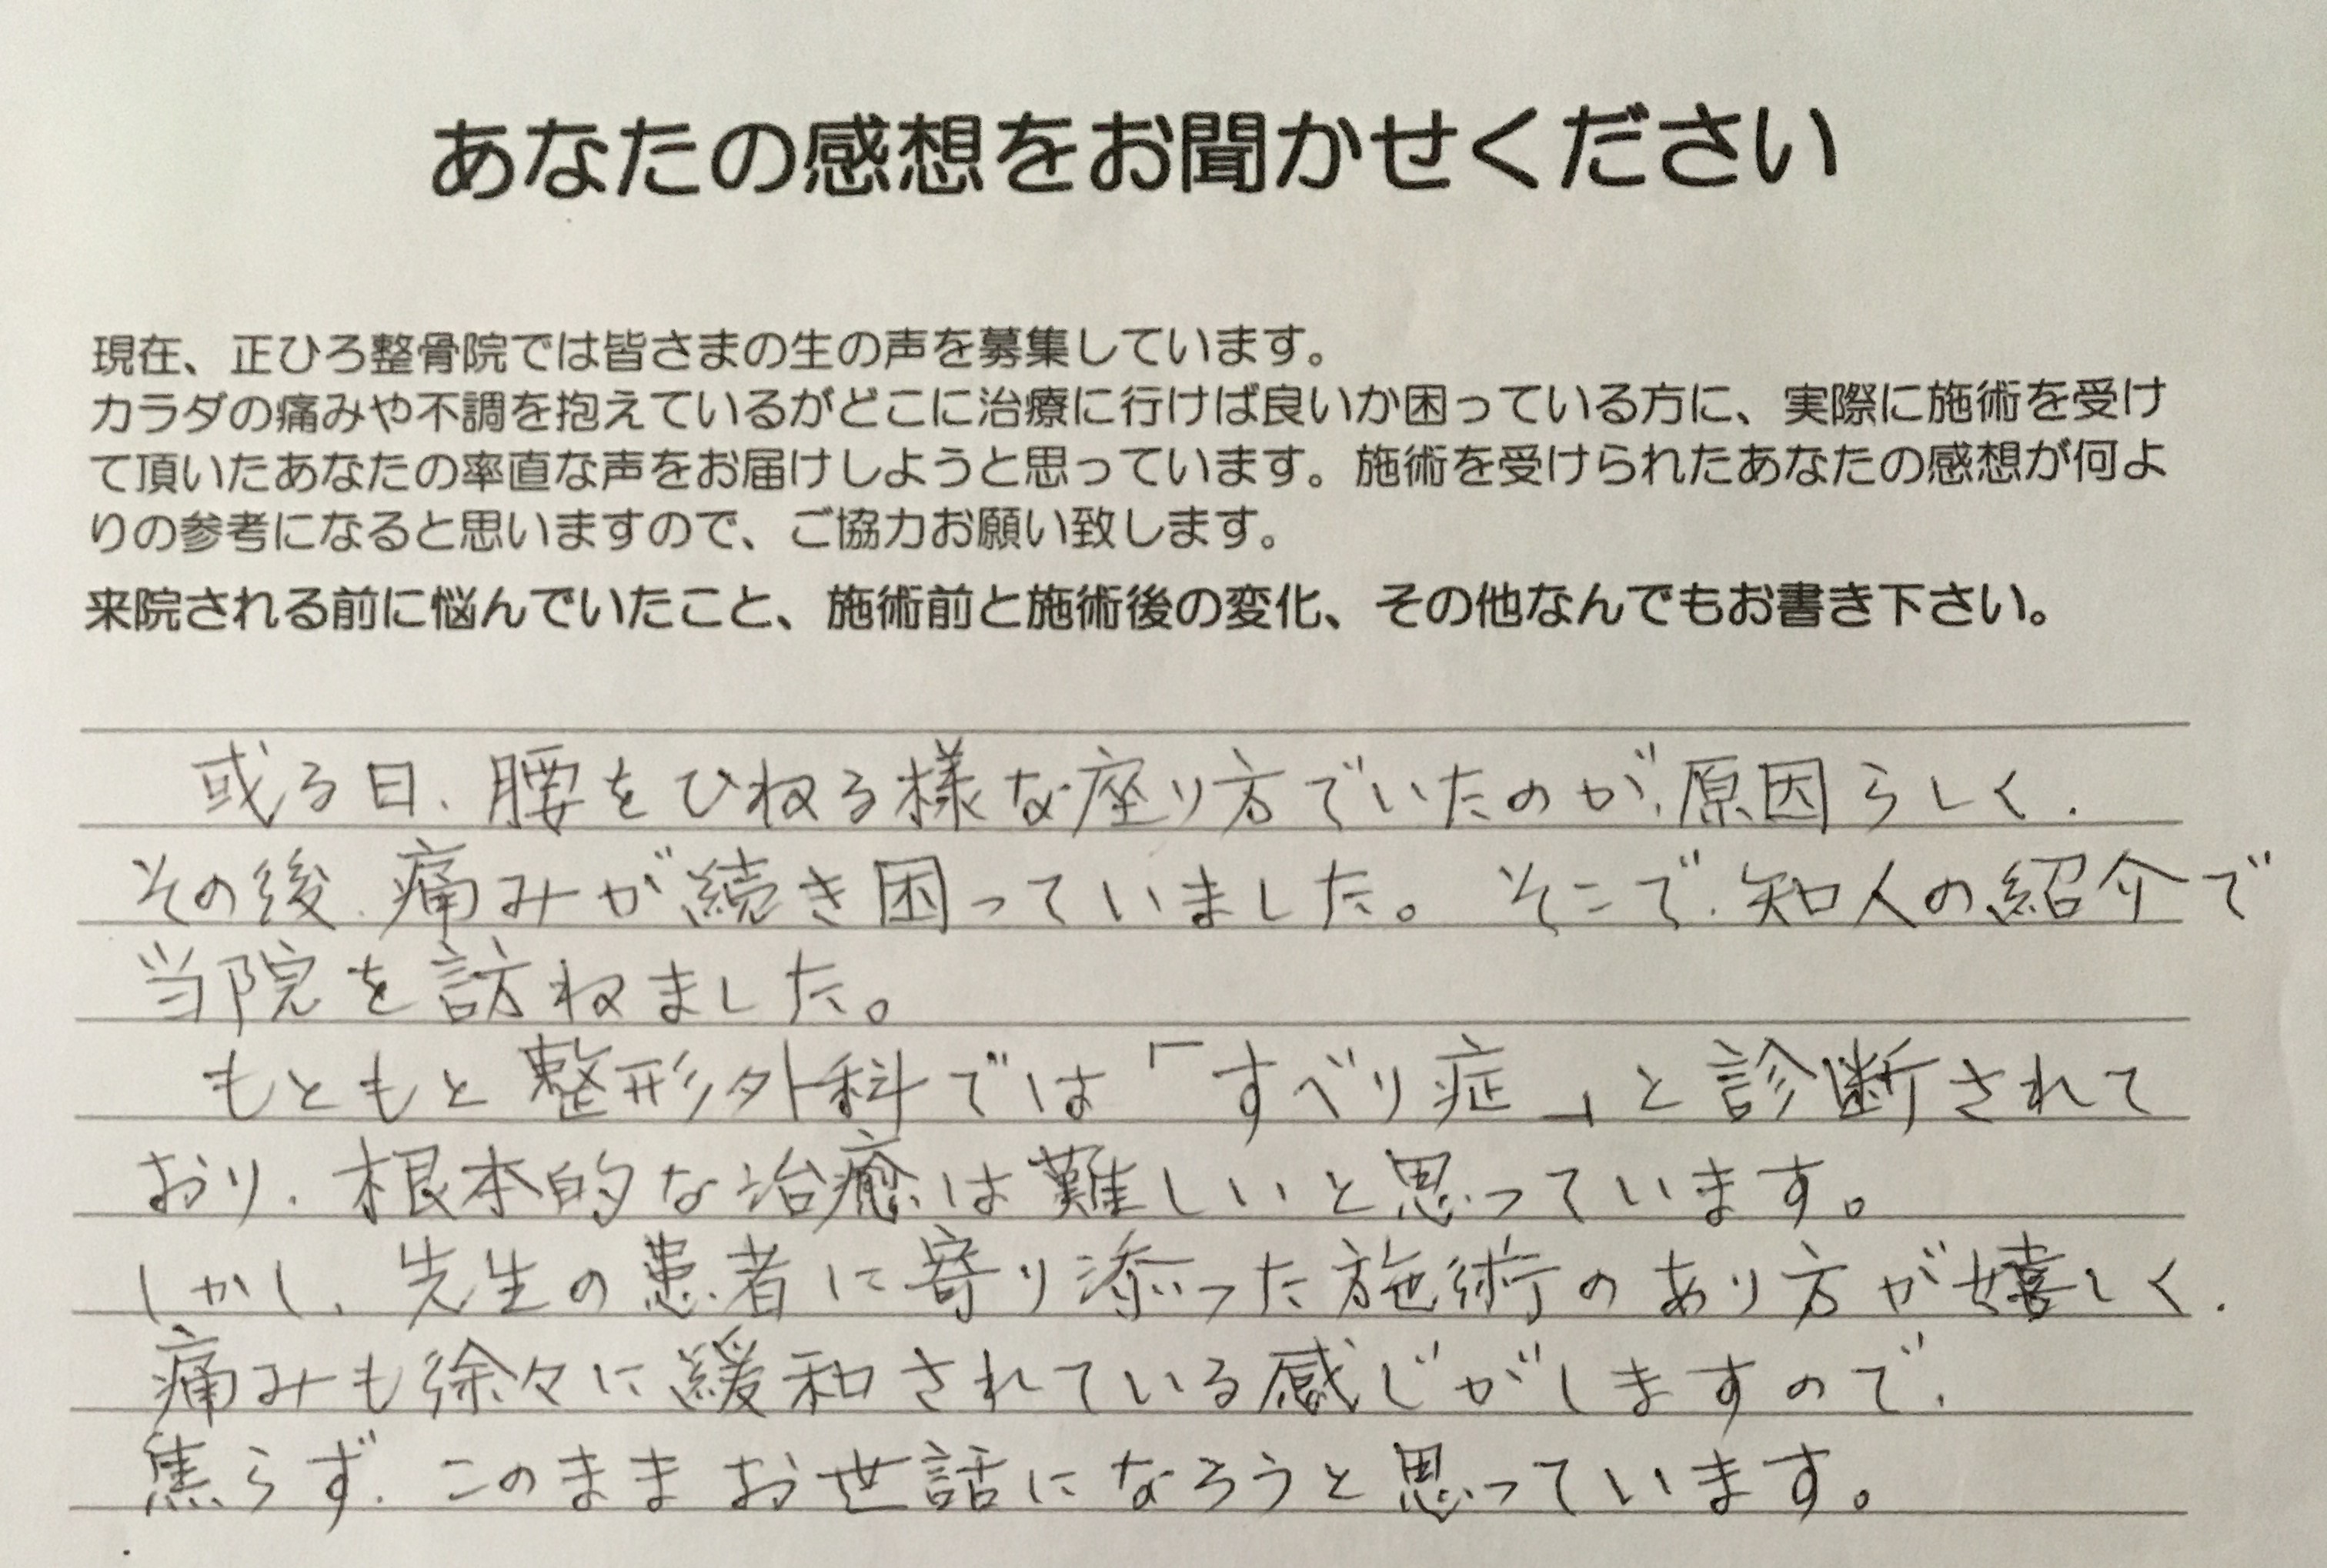 あなたの感想をお聞かせください
現在、正ひろ整骨院では皆さまの生の声を募集しています。
カラダの痛みや不調を抱えているがどこに治療に行けば良いか困っている方に、実際に施術を受け
て頂いたあなたの率直な声をお届けしようと思っています。施術を受けられたあなたの感想が何よ
りの参考になると思いますので、ご協力お願い致します。
来院される前に悩んでいたこと、施術前と施術後の変化、その他なんでもお書き下さい。
或る日、腰をひねる様な座り方でいたのが、原因らしく、
その後、痛みが続き困っていました。そこで、知人の紹介で
当院を訪ねました。
もともと整形外科では「すべり症」と診断されて
おり、根本的な治癒は難しいと思っています。
しかし、先生の患者に寄り添った施術のあり方が嬉しく、
痛みも徐々に緩和されている感じがしますので、
焦らず、このままお世話になろうと思っています。